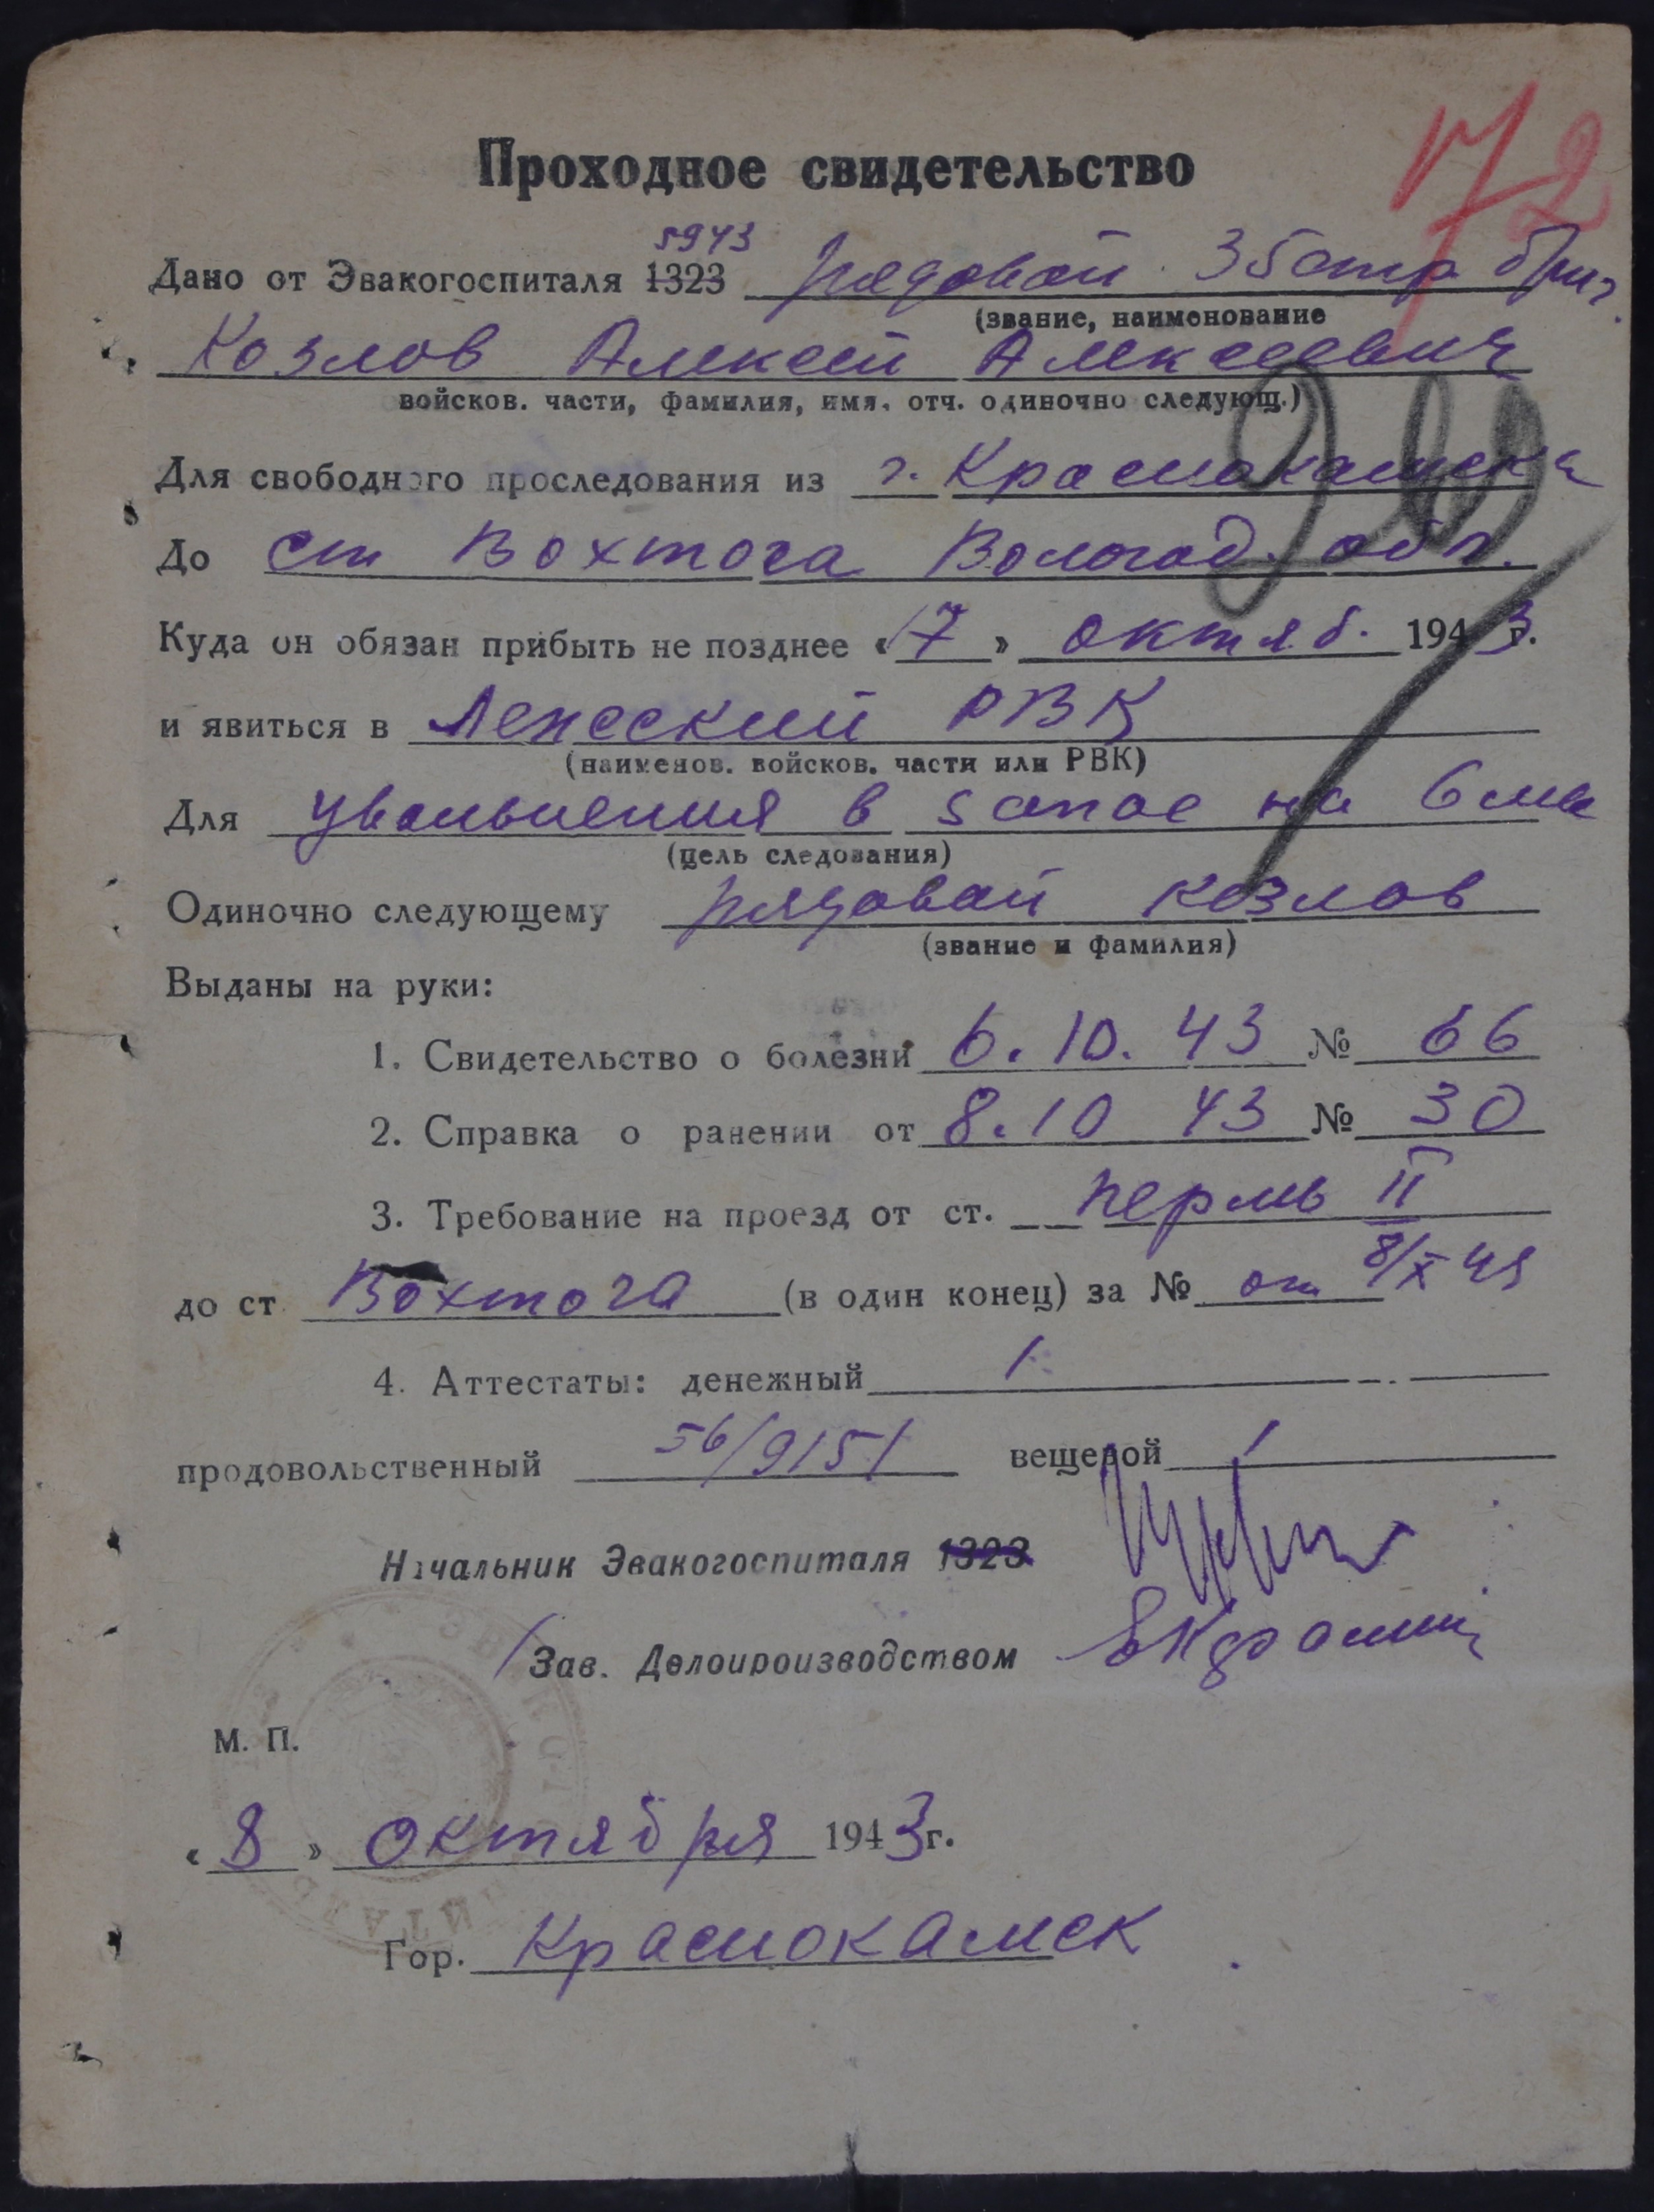 72
Проходное свидетельство
5943
Дано от Эвакогоспиталя 1323 рядовой 35 стр бриг.
(звание, наименование
Козлов Алексей Алексеевич
войсков. части, фамилия, имя, отч. одиночно следующ.)
Для свободного проследования из г. Краснокамска
До ст Вохтога Вологод. обл.
Куда он обязан прибыть не позднее «17» октяб. 1943 г.
и явиться в РВК
(наименов. войсков. части или РВК)
Для увольнения в запас на 6 мес
(цель следования)
Одиночно следующему рядовой Козлов
(звание и фамилия)
Выданы на руки:
1. Свидетельство о болезни 6.10.43 № 66
2. Справка о ранении от 8.10 43 № 30
3. Требование на проезд от ст. Пермь II
до ст Вохтога (в один конец) за № от 8/X 43
4. Аттестаты: денежный /
продовольственный 56/9151 вещевой /
Начальник Эвакогоспиталя 1323
/Зав. Делопроизводством
М. П.
«8» октября 1943 г.
Гор. Краснокамск